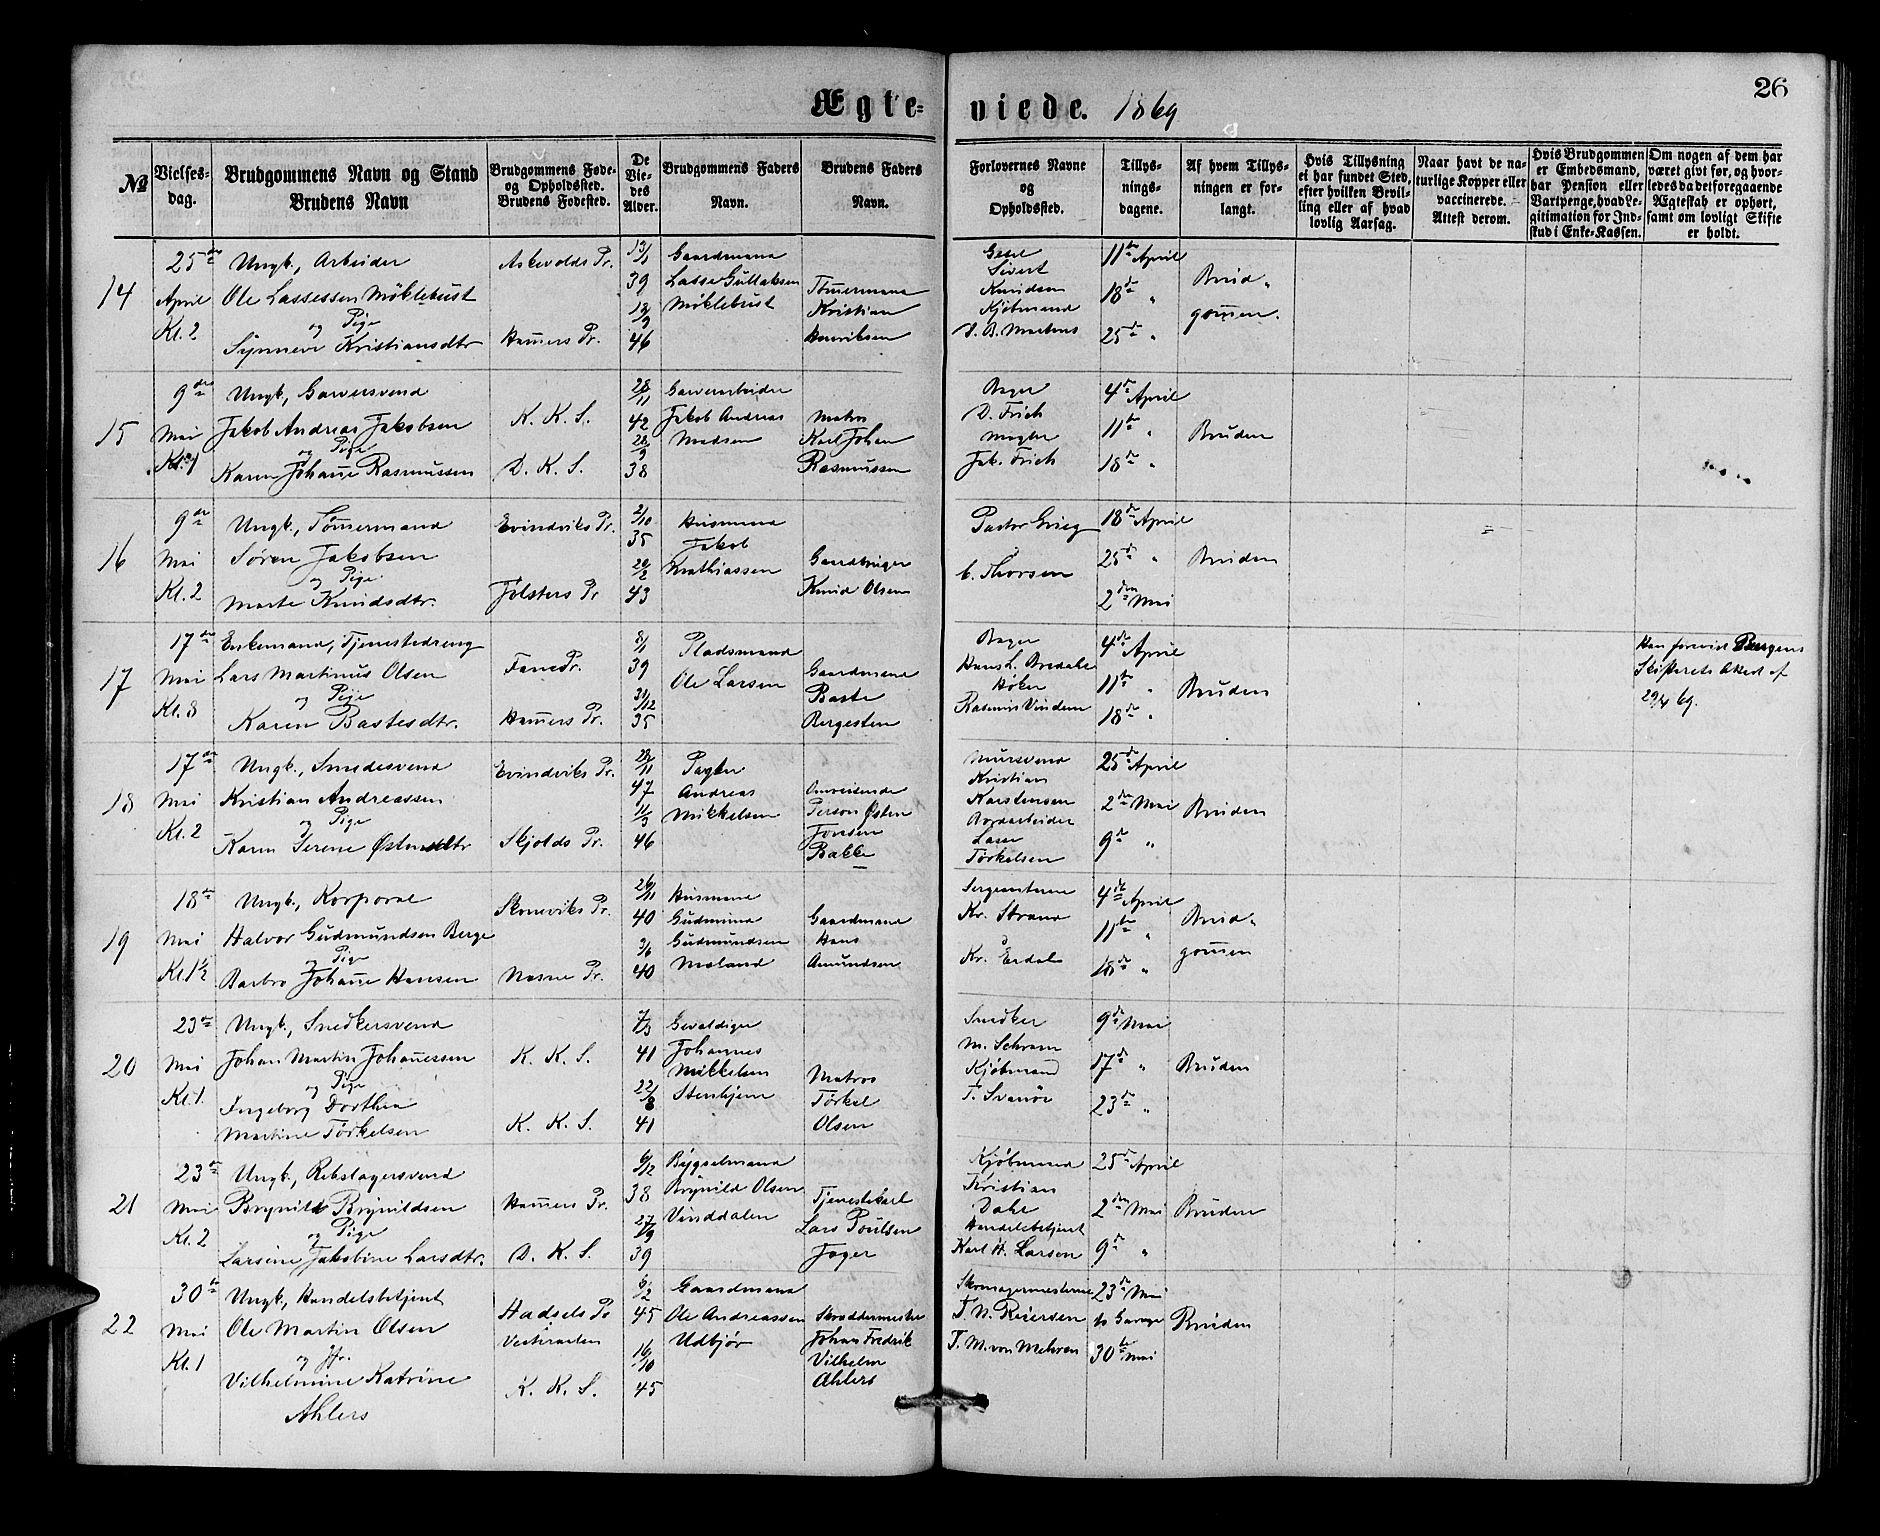 26
Ægte- viede. 1869
№
Vielses-
dag.
Brudgommens Navn og Stand
Brudens Navn
Brudgommens Føde-
og Opholdssted.
Brudens Fødested.
De
Vie-
des
Alder.
Brudgommens Faders
Navn.
Brudens Faders
Navn.
Forlovernes Navne
og
Opholdssted.
Tillys-
nings-
dagene.
Af hvem Tillys-
ningen er for-
langt.
Hvis Tillysning
ei har fundet Sted,
efter hvilken Bevil-
ling eller af hvad
lovlig Aarsag.
Naar havt de na-
turlige Kopper eller
vaccinerede.
Attest derom.
Hvis Brudgommen
er Embedsmand,
har Pension eller
Vartpenge, hvad Le-
gitimation for Ind-
skud i Enke-Kassen.
Om nogen af dem har
været gift før, og hvor-
ledes da det foregaaende
Ægteskab er ophørt,
samt om lovligt Skifte
er holdt.
14
25de
April
Kl. 2
Ungk., Arbeider
Ole Lassessen Møklebust
og Pige
Synneve Kristiansdtr
Askevolds Pr.
Hamers Pr.
13/1
39
13/9
46
Gaardmand
Lasse Gullaksen
Møklebust
Tømermand
Kristian
Henriksen
Gesel
Sivert
Knudsen
Kjøbmand
J. B. Martens
11te April
18de "
25de "
Brud-
gomen.
15
9de
Mai
Kl. 1
Ungk., Garversvend
Jakob Andreas Jakobsen
og Pige
Karen Johane Rasmussen
K. K. S.
D. K. S.
28/11
42
28/9
38
Garverarbeider
Jakob Andreas
Madsen
Matros
Karl Johan
Rasmussen
Bager
D. Frich
Mægler
Jak. Frich
4de April
11te "
18de "
Bruden
16
9de
Mai
Kl. 2
Ungk., Tømermand
Søren Jakobsen
og Pige
Marte Knudsdtr.
Evindviks Pr.
Jølsters Pr
2/10
35
20/2
43
Husmand
Jakob
Mathiassen
Gaardbruger
Knud Olsen
Pastor Grieg
C. Thorsen
18de April
25de "
2den Mai
Bruden
17
17de
Mai
Kl. 8
Enkemand, Tjenestedreng
Lars Martinus Olsen
og Pige
Karen Bastesdtr.
Fane Pr.
Hamers Pr.
8/1
39
31/12
35
Pladsmand
Ole Larsen
Gaardmand
Baste
Bergesten
Bager
Hans L. Bredals
Høker
Rasmus Vindem
4de April
11te "
18de "
Bruden
Han foreviste Bergens
Skifterets Attest af
29/4 69.
18
17de
Mai
Kl. 2
Ungk., Smedesvend
Kristian Andreassen
og Pige
Karen Serene Østensdtr
Evindviks Pr.
Skjolds Pr.
28/11
47
11/5
46
Pagter
Andreas
Mikkelsen
Omreisende
Person Østen
Jonsen
Bakke
Mursvend
Kristian
Karstensen
Bordarbeider
Lasse
Törkelsen
25de April
2den Mai
9de "
Bruden
19
18de
Mai
Kl. 1½
Ungk., Korporal
Halvor Gudmundsen Berge
og Pige
Barbro Johane Hansen
Skoneviks Pr.
Nesne Pr.
26/11
40
3/6
40
Husmand
Gudmund
Gudmundsen
Moland
Gaardmand
Hans
Amundsen
Sergeanterne
Kr. Strand
Kr. Erdal
4de April
11te "
18de "
Brud-
gomen
20
23de
Mai
Kl. 1.
Ungk., Snedkersvend
Johan Martin Johanessen
og Pige
Ingeborg Dorthea
Martine Törkelsen
K. K. S.
K. K. S.
7/3
41
22/8
41
Gevaldiger
Johannes
Mikkelsen
Stenhjem
Matros
Törkel
Olsen
Snedker
M. Schram
Kjøbmand
T. Svanöe
9de Mai
17de "
23de "
Bruden
21
23de
Mai
Kl. 2
Ungk., Rebslagersvend
Brynild Brynildsen
og Pige
Larsine Jakobine Larsdtr.
Hamers Pr.
D. K. S.
6/12
38
27/9
39
Bygselmand
Brynild Olsen
Vinddalen
Tjenestekarl
Lars Poulsen
Jager
Kjøbmand
Kristian
Dahl
Handelsbetjent
Karl H. Larsen
25de April
2den Mai
9de "
Bruden
22
30te
Mai
Kl. 1
Ungk., Handelsbetjent
Ole Martin Olsen
og Jfr.
Vilhelmine Katrine
Ahlers
Hadsels Pr
Vesteraalen
K. K. S.
6/2
45
16/10
45
Gaardmand
Ole Andreassen
Udbjør
Skræddermester
Johan Fredrik
Vilhelm
Ahlers
Skomagermesterne
T. N. Reiersen
T. M. von Mehren
23de Mai
to Gange
30te Mai
Bruden